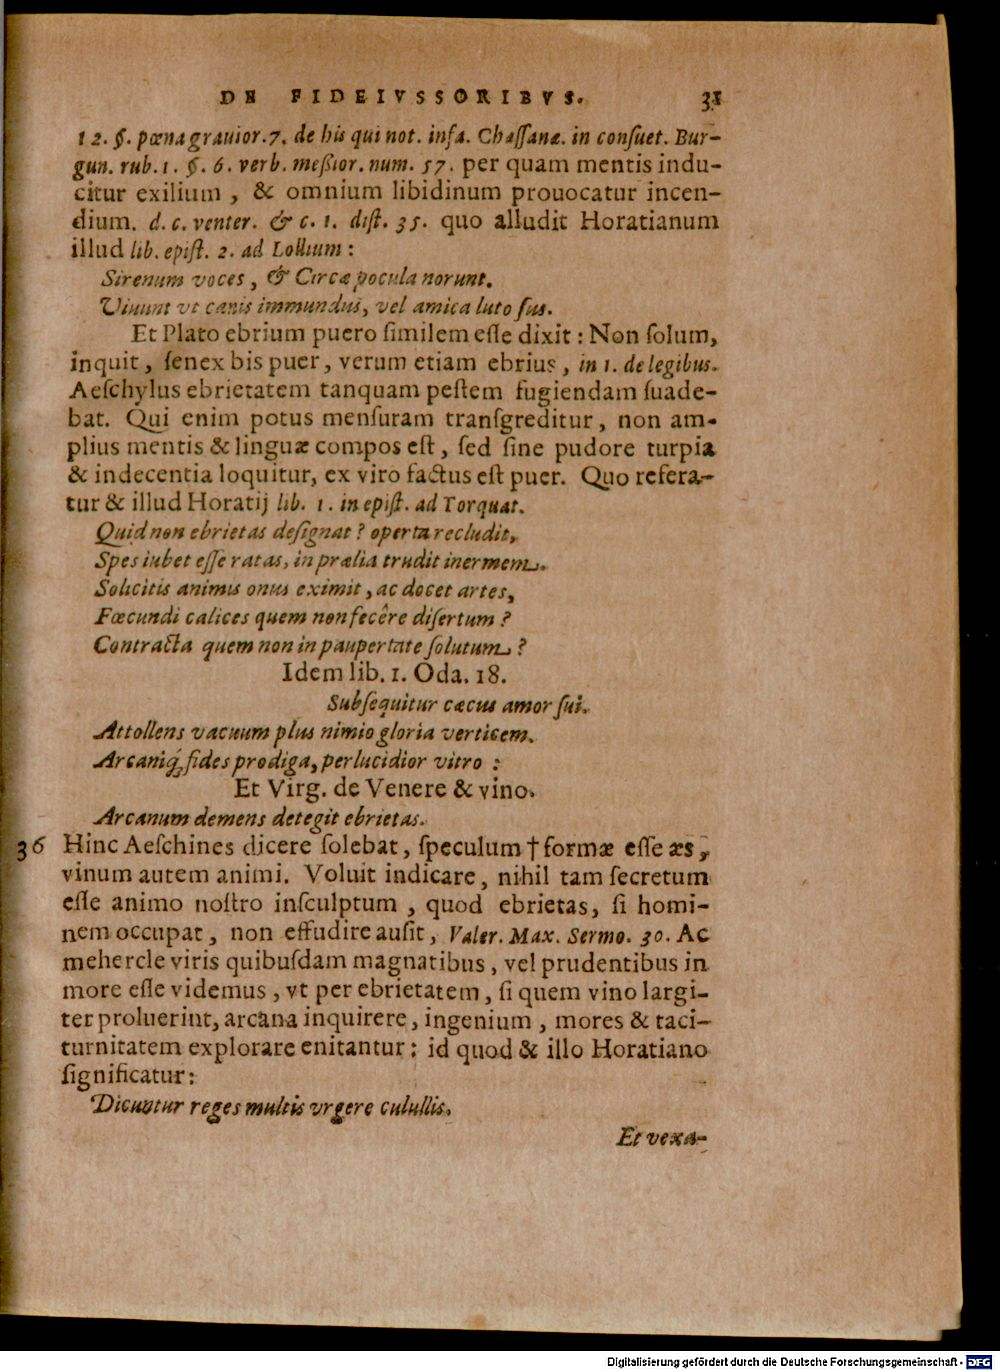 DE FIDEIVSSORIBVS. 31
12. §. pœna grauior. 7. de his qui not. infa. Chaſſanæ. in conſuet. Bur-
gun. rub. 1. §. 6. verb. meßior. num. 57. per quam mentis indu-
citur exilium, & omnium libidinum prouocatur incen-
dium. d. c. venter. & c. 1. diſt. 35. quo alludit Horatianum
illud lib. epiſt. 2. ad Lollium:
Sirenum voces, & Circæ pocula norunt.
Viuunt vt canis immundus, vel amica luto ſus.
Et Plato ebrium puero ſimilem eſſe dixit: Non ſolum,
inquit, ſenex bis puer, verum etiam ebrius, in 1. de legibus.
Aeſchylus ebrietatem tanquam peſtem fugiendam ſuade-
bat. Qui enim potus menſuram tranſgreditur, non am-
plius mentis & linguæ compos eſt, ſed ſine pudore turpia
& indecentia loquitur, ex viro factus eſt puer. Quo refera-
tur & illud Horatij lib. 1. in epiſt. ad Torquat.
Quid non ebrietas deſignat? operta recludit,
Spes iubet eſſe ratas, in prælia trudit inermem.
Solicitis animis onus eximit, ac docet artes,
Fœcundi calices quem non fecêre diſertum?
Contracta quem non in paupertate ſolutum?
Idem lib. 1. Oda. 18.
Subſequitur cæcus amor ſui.
Attollens vacuum plus nimio gloria verticem.
Arcaniq́; fides prodiga, perlucidior vitro:
Et Virg. de Venere & vino.
Arcanum demens detegit ebrietas.
36 Hinc Aeſchines dicere ſolebat, ſpeculum † formæ eſſe æs,
vinum autem animi. Voluit indicare, nihil tam ſecretum
eſſe animo noſtro inſculptum, quod ebrietas, ſi homi-
nem occupat, non effudire auſit, Valer. Max. Sermo. 30. Ac
mehercle viris quibuſdam magnatibus, vel prudentibus in
more eſſe videmus, vt per ebrietatem, ſi quem vino largi-
ter proluerint, arcana inquirere, ingenium, mores & taci-
turnitatem explorare enitantur: id quod & illo Horatiano
ſignificatur:
Dicuntur reges multis vrgere culullis.
Et vexa-
Digitalisierung gefördert durch die Deutsche Forschungsgemeinschaft - DFG